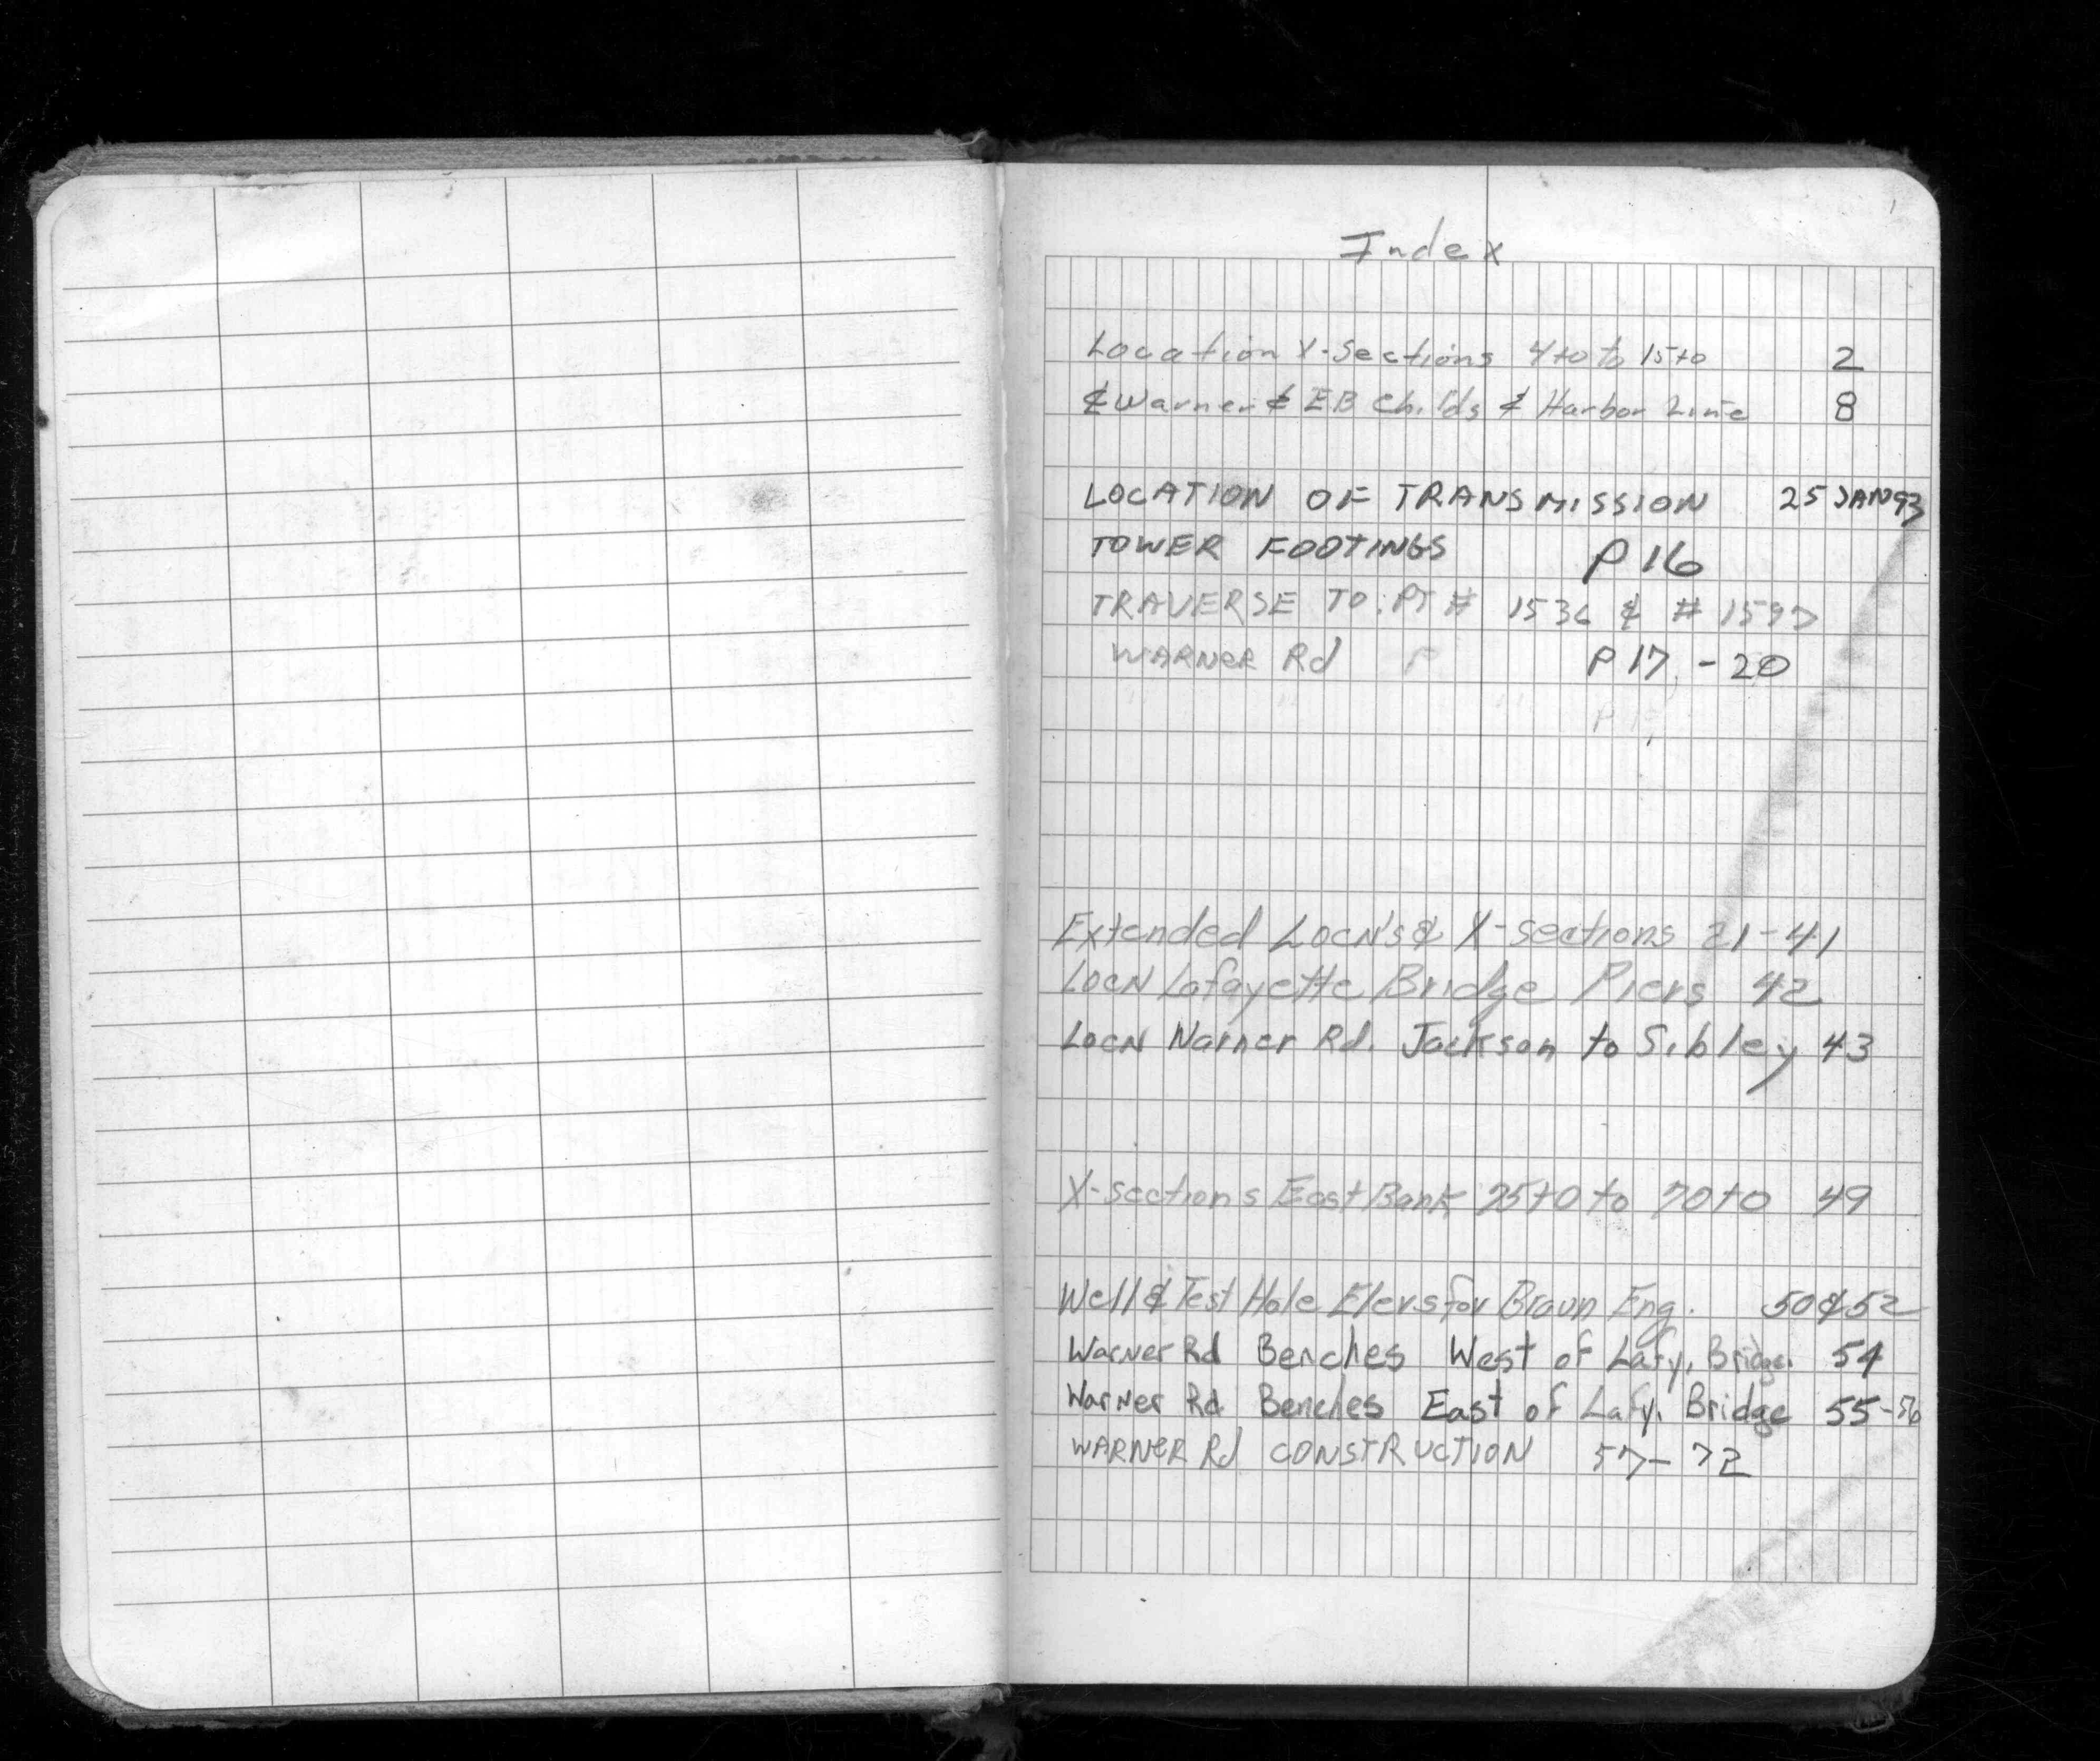 1
Index
Location X-Sections 4+0 to 15+0 2
¢ Warner & EB Childs & Harbor Line 8
LOCATION OF TRANSMISSION 25 JAN 93
TOWER FOOTINGS P 16
TRAVERSE TO: PT # 1536 & # 1597
WARNER Rd P P 17 - 20
" " " P 19
Extended Locn's & X-sections 21-41
Locn Lafayette Bridge Piers 42
Locn Warner Rd. Jackson to Sibley 43
X-sections East Bank 25+0 to 70+0 49
Well & Test Hole Elevs for Braun Eng. 50 & 52
Warner Rd Benches West of Lafy. Bridge 54
Warner Rd Benches East of Lafy. Bridge 55-56
WARNER Rd CONSTRUCTION 57-72